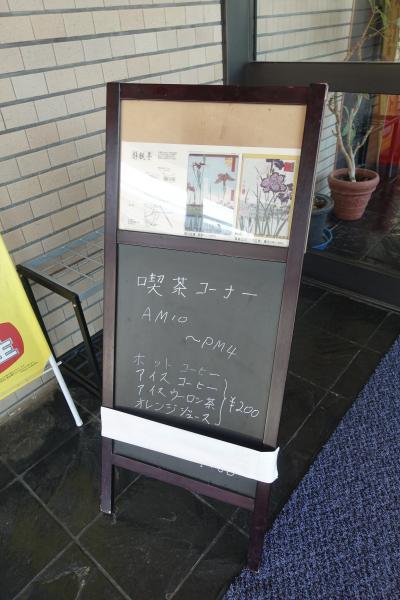 喫茶コーナー
AM10
～PM4
ホットコーヒー
アイスコーヒー
アイスウーロン茶
オレンジジュース
¥200